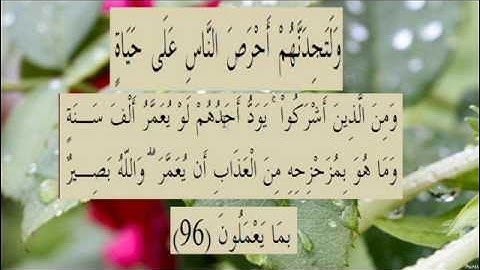 وَلَتَجِدَنَّهُمْ أَحْرَصَ النَّاسِ عَلَى حَيَاةٍ
وَمِنَ الَّذِينَ أَشْرَكُواْ ۚ يَوَدُّ أَحَدُهُمْ لَوْ يُعَمَّرُ أَلْفَ سَـــنَةٍ
وَمَا هُوَ بِمُزَحْزِحِهِ مِنَ الْعَذَابِ أَن يُعَمَّرَ ۗ وَاللّهُ بَصِـــيرٌ
بِمَا يَعْمَلُونَ (96)